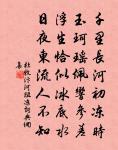 千里長河初凍時
玉珂瑤珮響參差
浮生恰似冰底水
日夜東流人不知
杜牧汴河阻凍詩典閣